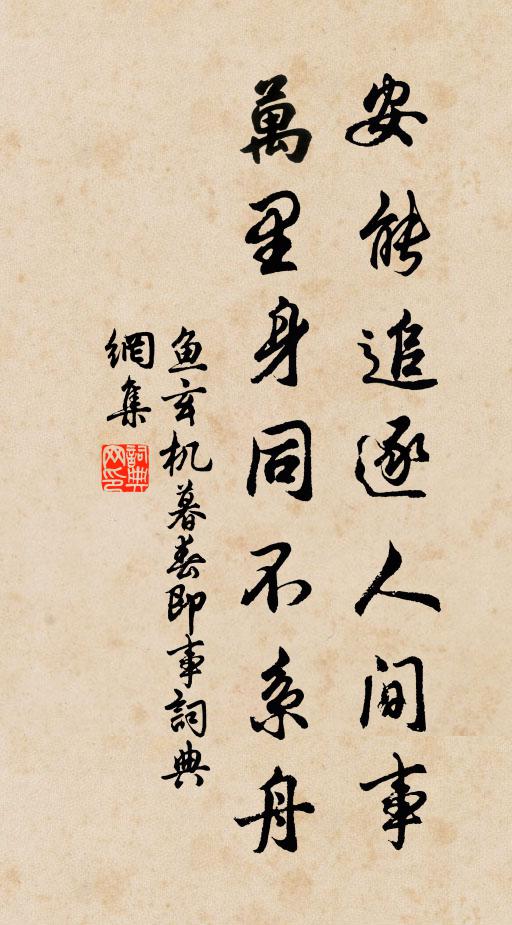 安能追逐人间事
萬里身同不系舟
鱼玄机暮春即事詞典
網集
詞典
网印